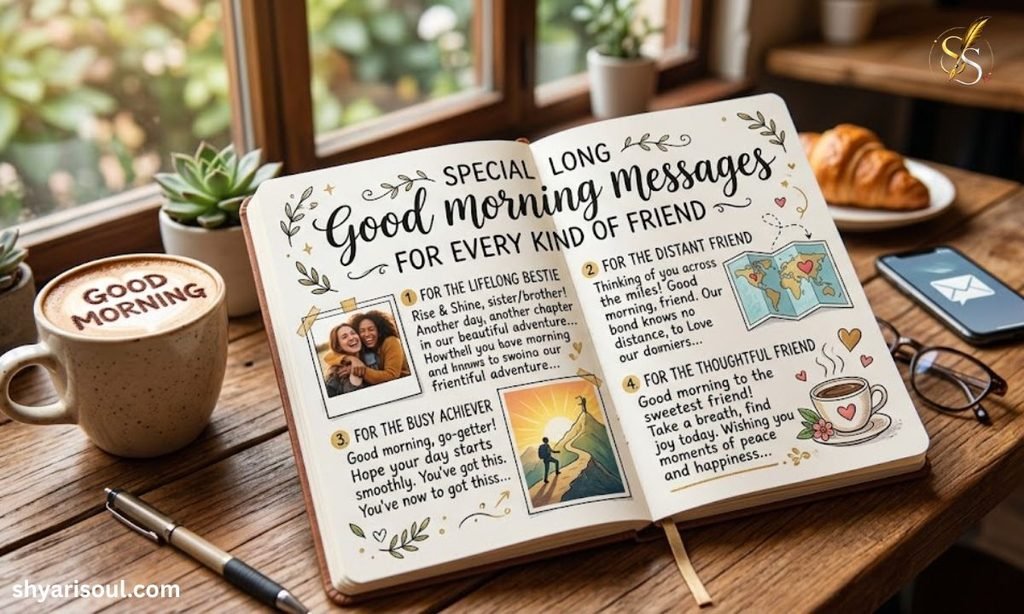 SS
GOOD
MORNING
SPECIAL LONG
Good morning messages
FOR EVERY KIND OF FRIEND
1 FOR THE LIFELONG BESTIE
Rise & Shine, sister/brother!
Another day, another chapter
in our beautiful adventure...
Howthell you have morning
and to our
frientiful adventure...
2 FOR THE DISTANT FRIEND
Thinking of you across
the miles! Good
morning, friend. Our
bond knows no
distance, to Love
our
3 FOR THE BUSY ACHIEVER
Good morning, go-getter!
Hope your day starts
smoothly. You've got this.
You've now to got this...
4 FOR THE THOUGHTFUL FRIEND
Good morning to the
sweetest friend!
Take a breath, find
joy today. Wishing you
moments of peace
and happiness...
shyarisoul.com